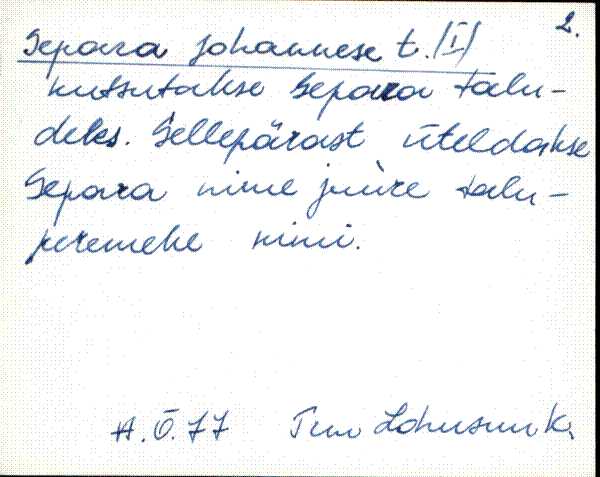 2.
Separa Johannese t. (I)
kutsutakse Separa talu-
deks. Sellepärast üteldakse
Separa nime juure talu-
peremehe nimi.
A.Õ.77 Tmr Lohusuu k.